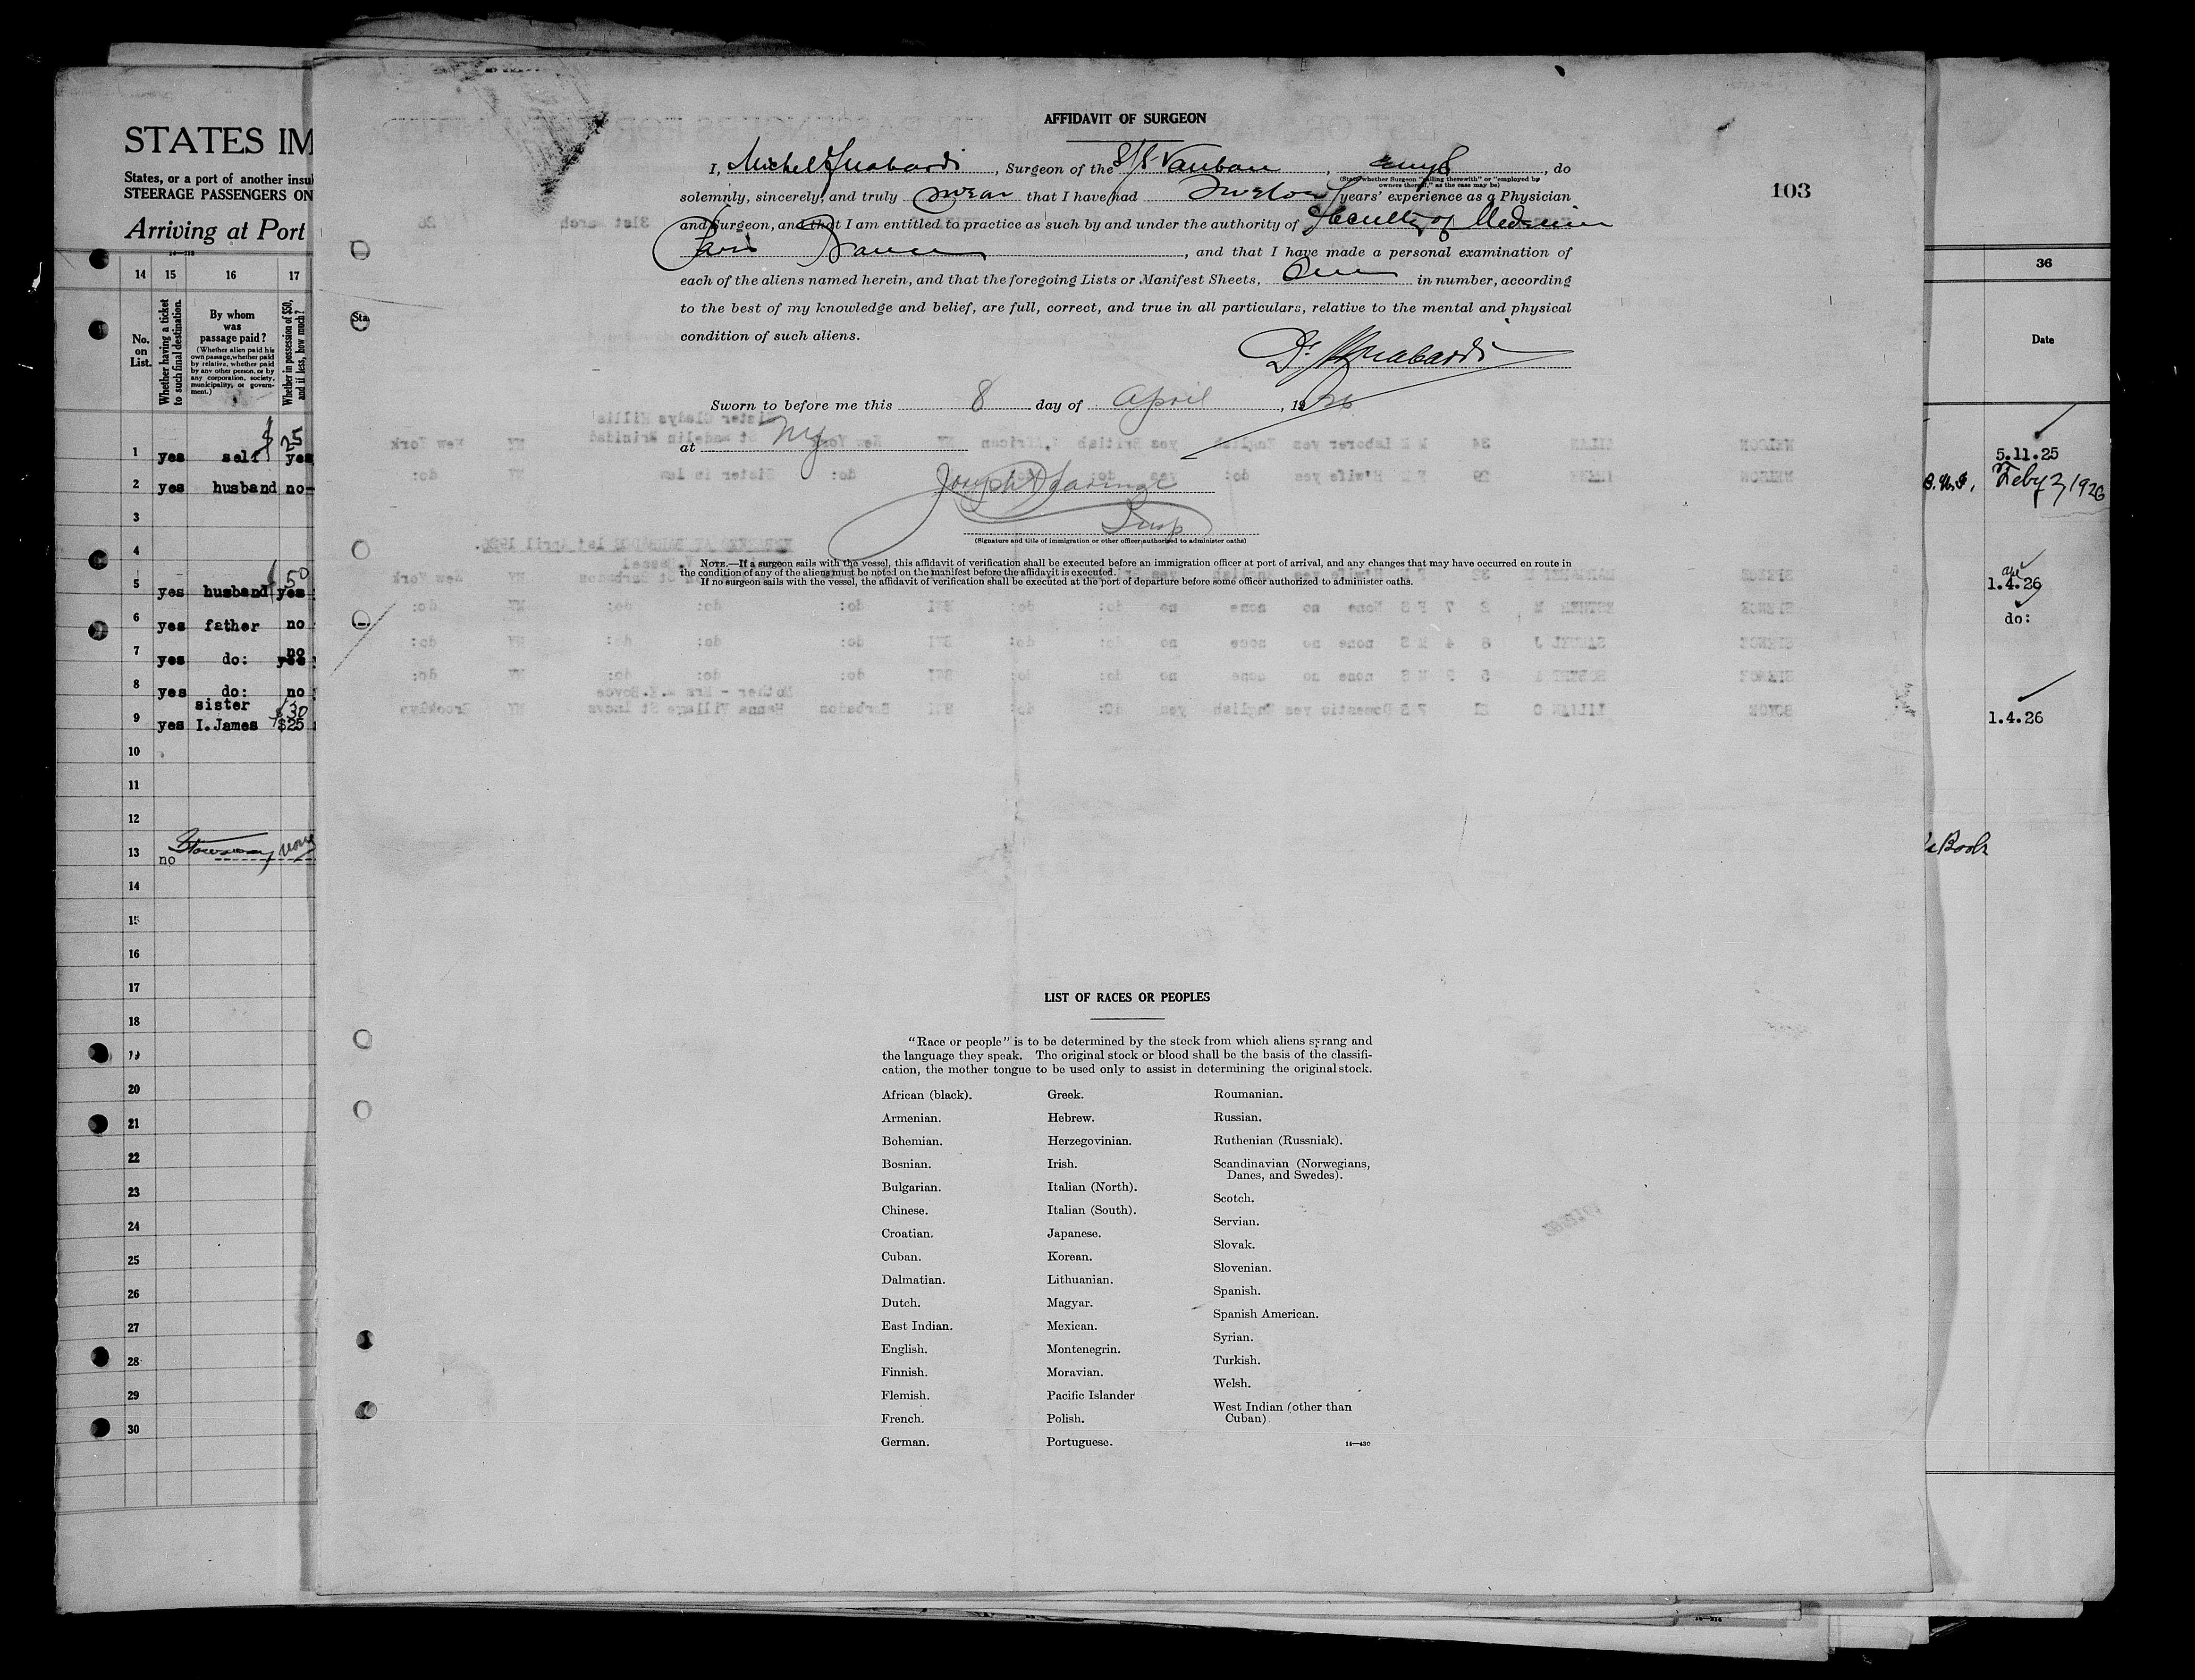 STATES IM
States, or a port of another insul
STEERAGE PASSENGERS ON
Arriving at Port
14 15 16 17
No. on List.
Whether having a ticket to such final destination.
By whom was passage paid?
(Whether alien paid his own passage, whether paid by relative, whether paid by any other person, or by any corporation, society, municipality, or government.)
Whether in possession of $50, and if less, how much?
1 yes self $25 yes
2 yes husband no
3
4
5 yes husband $50 yes
6 yes father no
7 yes do: no yes
8 yes do: no
sister $30
9 yes I. James $25
10
11
12
13 no Stowaway none
14
15
16
17
18
19
20
21
22
23
24
25
26
27
28
29
30
AFFIDAVIT OF SURGEON
103
I, Michel, Surgeon of the S/S Vauban, , do
(State whether Surgeon "sailing therewith" or "employed by owners thereof," as the case may be)
solemnly, sincerely, and truly swear that I have had years' experience as a Physician
and Surgeon, and that I am entitled to practice as such by and under the authority of Faculty of Medecine
Paris France, and that I have made a personal examination of
each of the aliens named herein, and that the foregoing Lists or Manifest Sheets, One in number, according
to the best of my knowledge and belief, are full, correct, and true in all particulars, relative to the mental and physical
condition of such aliens.
Dr
Sworn to before me this 8 day of April, 1926
at NY
Joseph
Insp
(Signature and title of immigration or other officer authorized to administer oaths)
NOTE.—If a surgeon sails with the vessel, this affidavit of verification shall be executed before an immigration officer at port of arrival, and any changes that may have occurred en route in
the condition of any of the aliens must be noted on the manifest before the affidavit is executed.
If no surgeon sails with the vessel, the affidavit of verification shall be executed at the port of departure before some officer authorized to administer oaths.
LIST OF RACES OR PEOPLES
"Race or people" is to be determined by the stock from which aliens sprang and
the language they speak. The original stock or blood shall be the basis of the classifi-
cation, the mother tongue to be used only to assist in determining the original stock.
African (black).
Armenian.
Bohemian.
Bosnian.
Bulgarian.
Chinese.
Croatian.
Cuban.
Dalmatian.
Dutch.
East Indian.
English.
Finnish.
Flemish.
French.
German.
Greek.
Hebrew.
Herzegovinian.
Irish.
Italian (North).
Italian (South).
Japanese.
Korean.
Lithuanian.
Magyar.
Mexican.
Montenegrin.
Moravian.
Pacific Islander
Polish.
Portuguese.
Roumanian.
Russian.
Ruthenian (Russniak).
Scandinavian (Norwegians,
Danes, and Swedes).
Scotch.
Servian.
Slovak.
Slovenian.
Spanish.
Spanish American.
Syrian.
Turkish.
Welsh.
West Indian (other than
Cuban).
14—430
36
Date
5.11.25
Feby 2, 1926
1.4.26
do:
1.4.26
Book